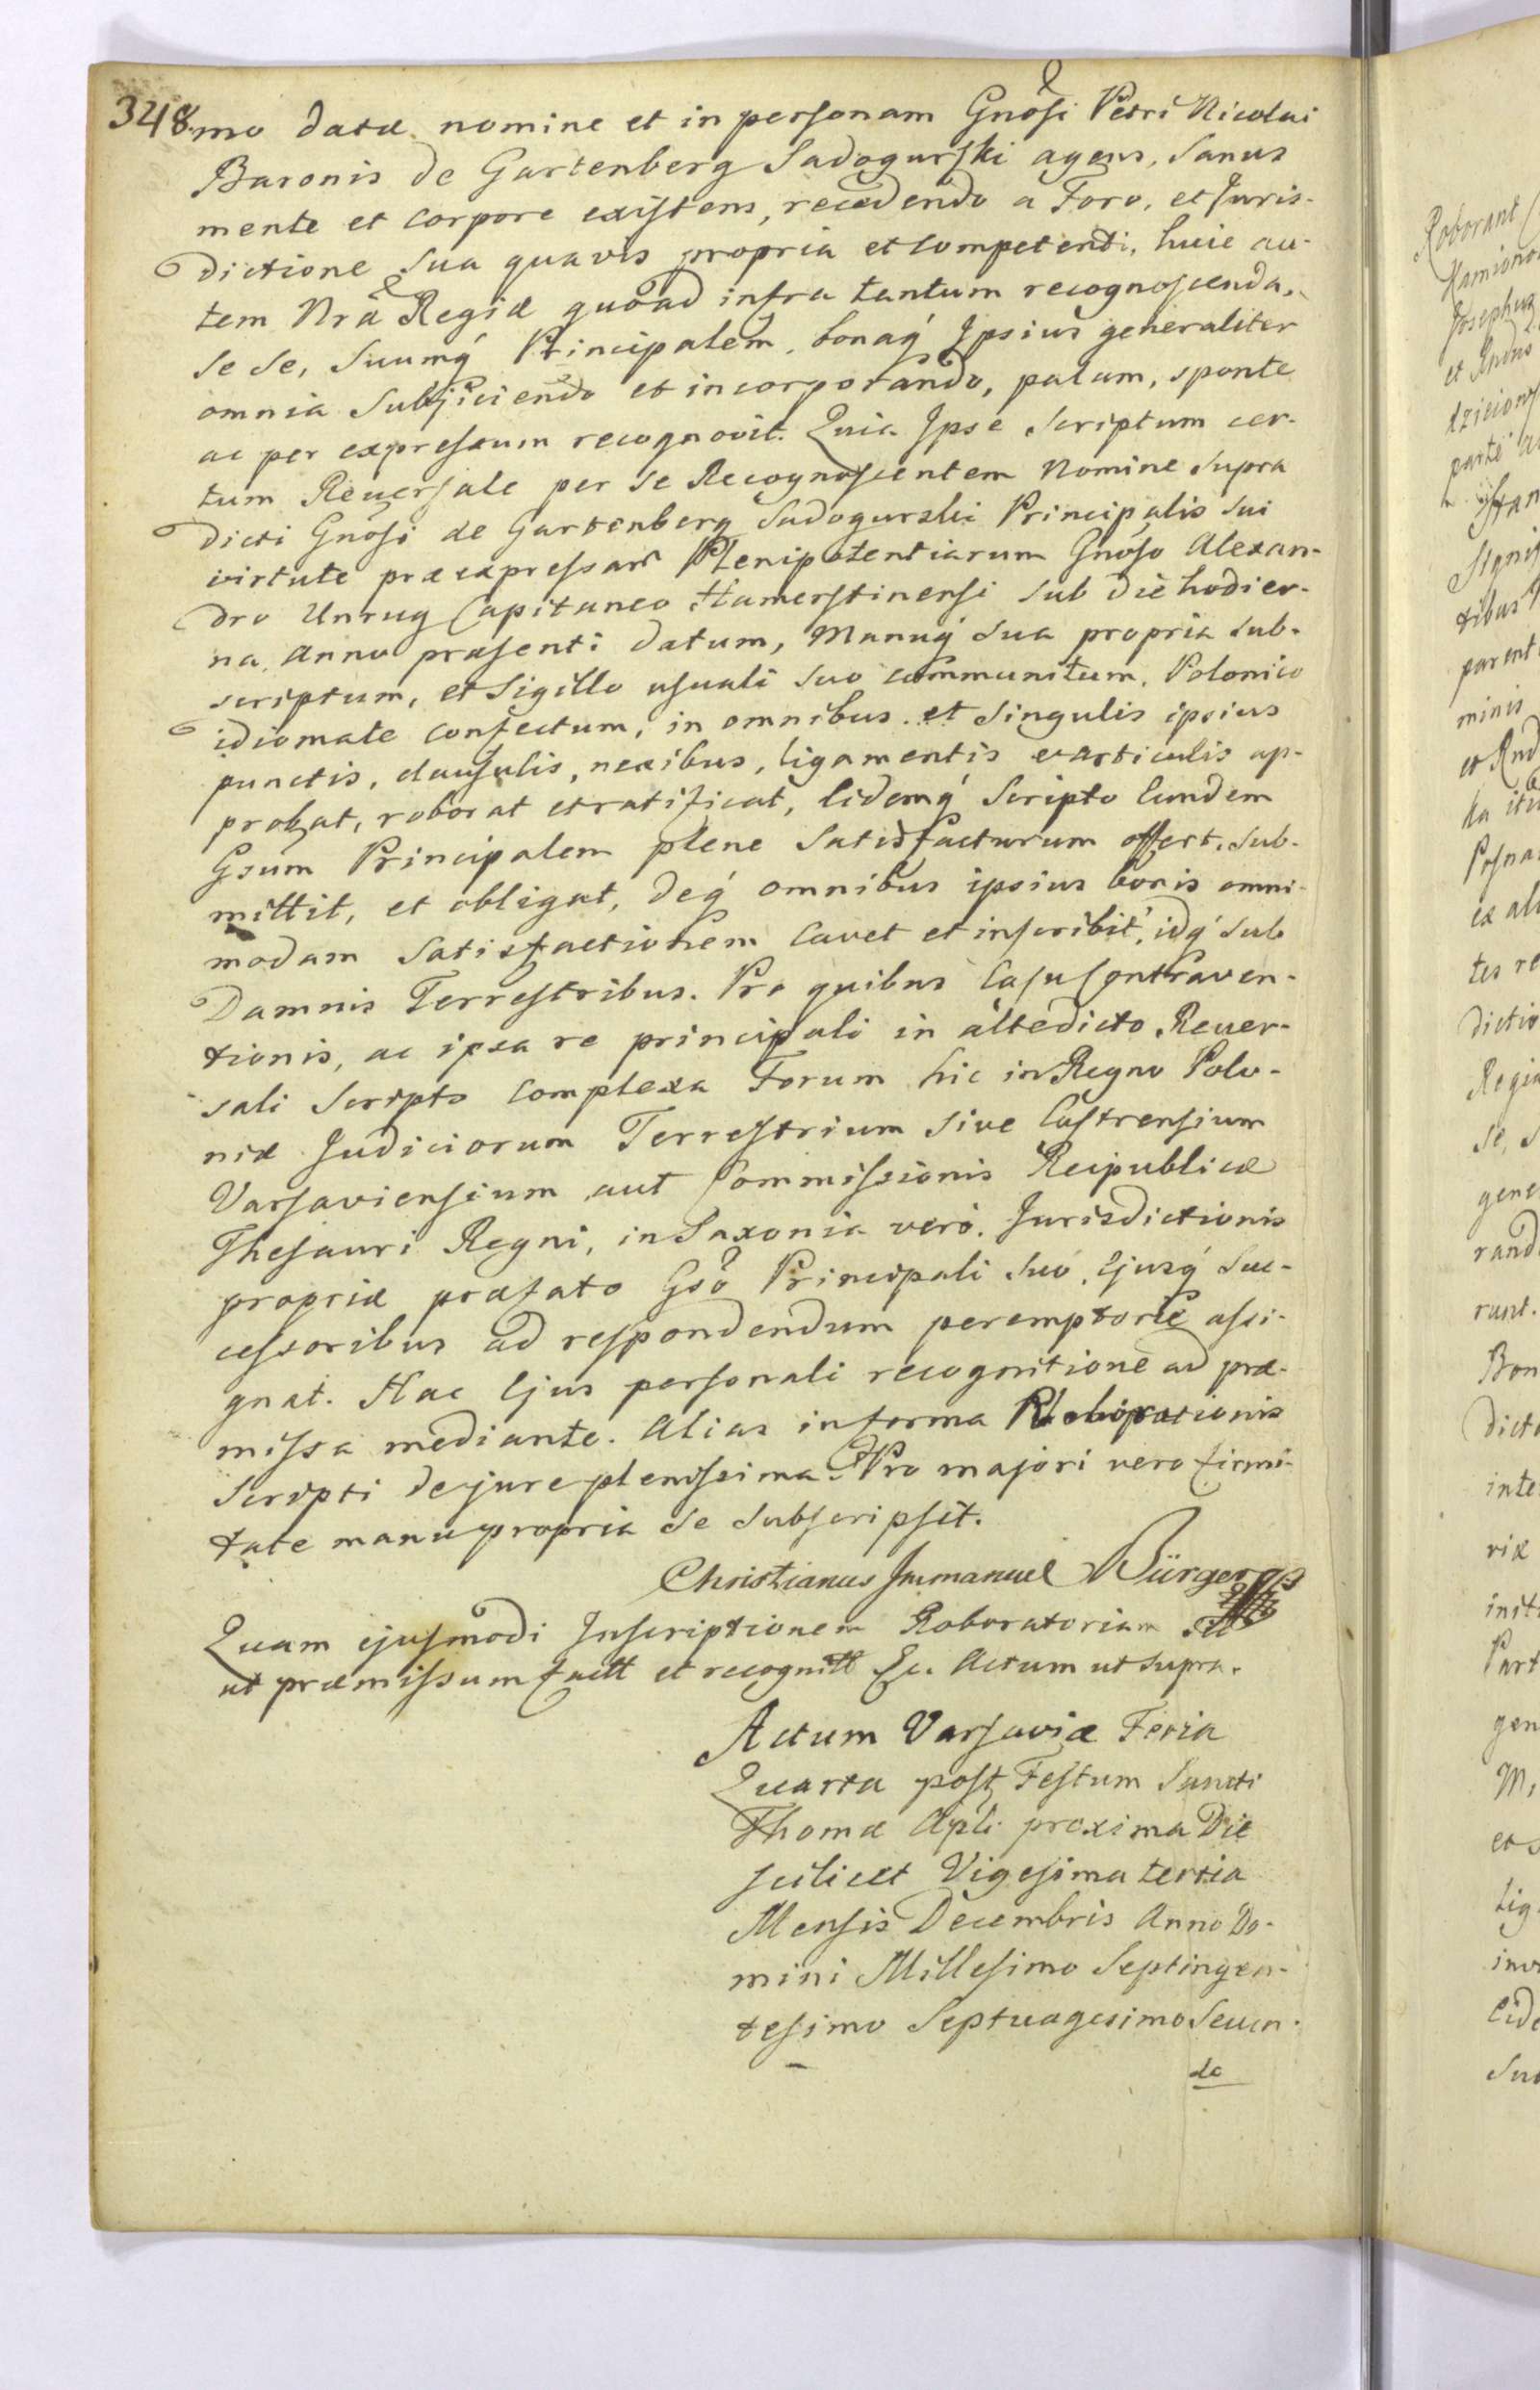 348.
mo datæ nomine et in personam Gnosi Petri Nicolai
Baronis de Gartenberg Sadogurski agens, Sanus
mente et corpore existens, recedendo a Foro, et Juris-
dictione sua quavis propria et competenti, huic au-
tem Nrã Regiæ quoad infra tantum recognoscenda,
se se, Suumq́ Principalem, bonaq́ Ipsius generaliter
omnia Subjiciendo et incorporando, palam, sponte
ac per expressum recognovit. Quia Ipse Scriptum cer-
tum Reversale per se Recognoscentem Nomine Supra
dicti Gnosi de Gartenberg Sadogurski Principalis Sui
virtute præexpressar Plenipotentiarum Gnoso Alexan-
dro Unrug Capitaneo Hamerstinensi sub die hodier-
na, Anno præsenti datum, Manuq́ Sua propria sub-
scriptum, et Sigillo usuali Suo communitum, Polonico
idiomate confectum, in omnibus et Singulis ipsius
punctis, clausulis, nexibus, ligamentis et articulis ap-
probat, roborat et ratificat, Eidemq́ Scripto Eundem
Gsum Principalem plene Satisfacturum offert, sub-
mittit, et obligat, deq́ omnibus ipsius bonis omni-
modam Satisfactionem Cavet et inscribit, idq́ Sub
Damnis Terrestribus. Pro quibus Casu Contraven-
tionis, ac ipsa re principali in altedicto Rever-
sali Scripto Complexa Forum hic in Regno Polo-
niæ Judiciorum Terrestrium Sive Castrensium
Varsaviensium aut Commissionis Reipublicæ
Thesauri Regni, in Saxonia verò Jurisdictionis
propriæ præfato Gsõ Principali Suó, Ejusq́ Suc-
cessoribus ad respondendum peremptorie assi-
gnat. Hac Ejus personali recognitione ad præ-
missa mediante. Alias in forma Roborationis
Scripti de jure plenissima. Pro majori vero firmi-
tate manu propria Se Subscripsit.
Christianus Immanuel Bürger
Quam ejusmodi Inscriptionem Roboratoriam
ut præmissum facitt et recognitt Ec. Actum ut supra.
Actum Varsaviæ Feria
Quarta post Festum Sancti
Thomæ Apli proxima Die
scilicet Vigesima tertia
Mensis Decembris Anno Do-
mini Millesimo Septingen-
tesimo Septuagesimo Secun-
do
Roborant
Josephus
parte
Signi
tibus
parent
minis
ex al
tes re
dictio
Regia
se, s
gene
rand
runt.
Bon
dict
inte
riæ
inst
Part
gen
M
et s
lig
inv
Eide
Suo